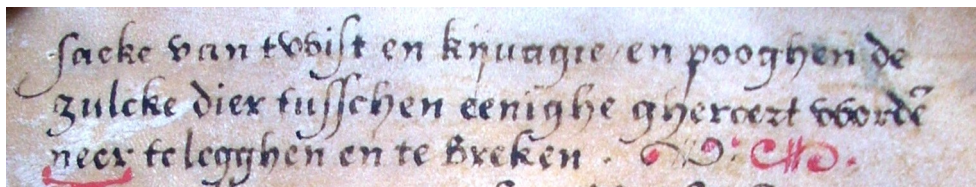 saeke van twist en kijvagie / en pooghen de
zulcke dier tusschen eenighe gheroert wordē
neer te legghen en te breken .